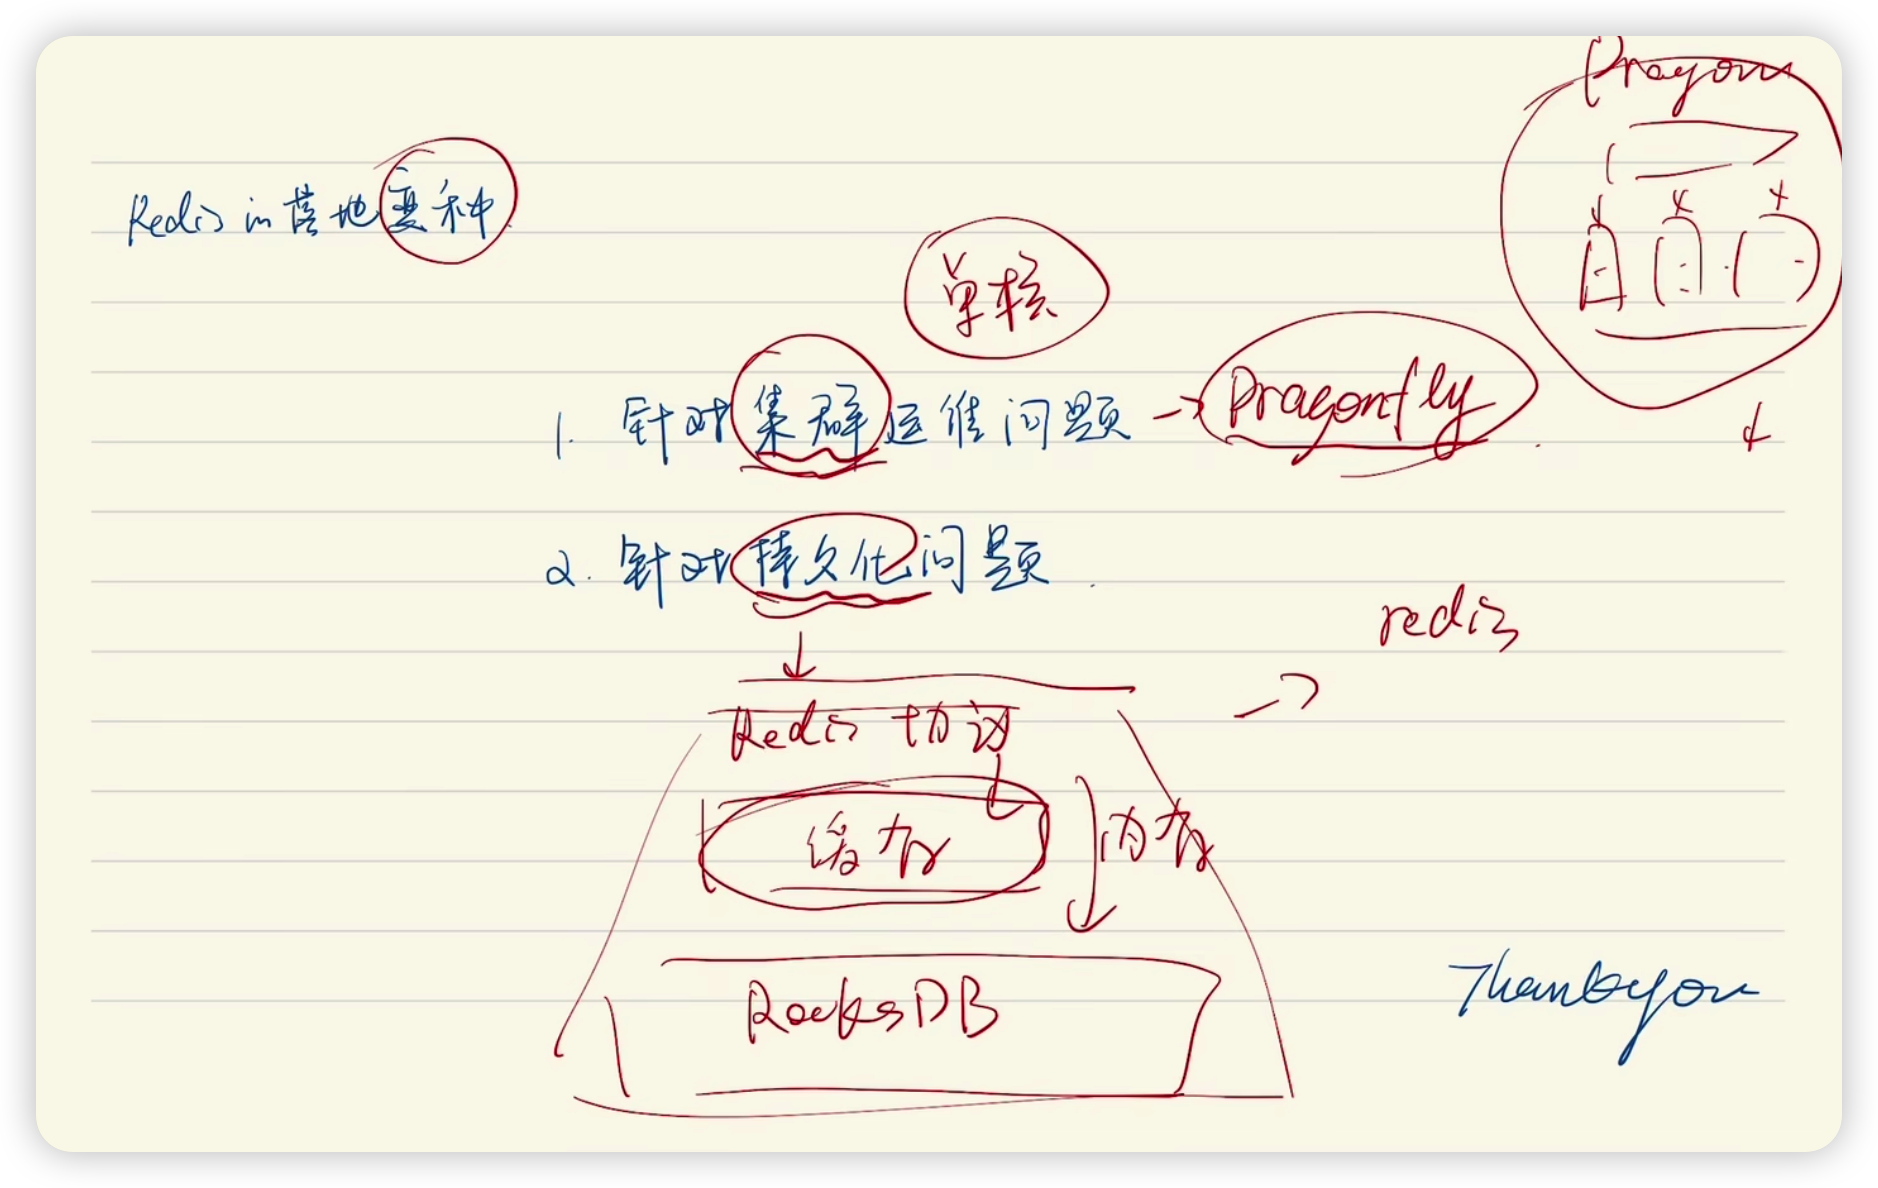 Dragon
Redis的落地变种
单核
1. 针对集群运维问题 → Dragonfly
2. 针对持久化问题
redis
Redis 协议
缓存
内存
RocksDB
Thank you